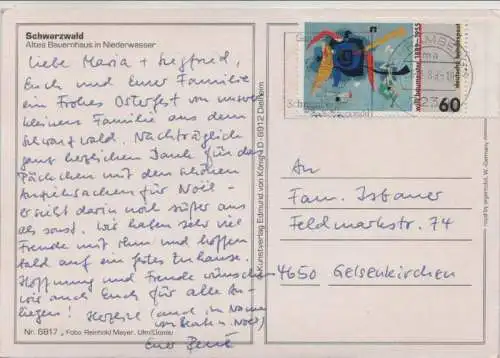 Schwarzwald
Altes Bauernhaus in Niederwasser
Liebe Maria + Siegfried,
Euch und Eurer Familie
ein Frohes Osterfest von unserer
kleinen Familie aus dem
Schwarzwald. Nachträglich
ganz herzlichen Dank für das
Päckchen mit den schönen
Anziehsachen für Noël -
er sieht darin noch süßer aus
als sonst. Wir haben sehr viel
Freude mit ihm und hoffen
bald auf ein gutes Zuhause.
Hoffnung und Freude wünschen
wir auch Euch für alle An-
liegen! Herzlichst (auch im Namen
von Noël)
Euer
Nr. 8817 Foto: Reinhold Mayer, Ulm/Donau
Kunstverlag Edmund von König · D-6912 Dielheim
willi baumeister 1889-1955
deutsche bundespost
60
An
Fam. Isbaner
Feldmarkstr. 74
4650 Gelsenkirchen
W.-Germany